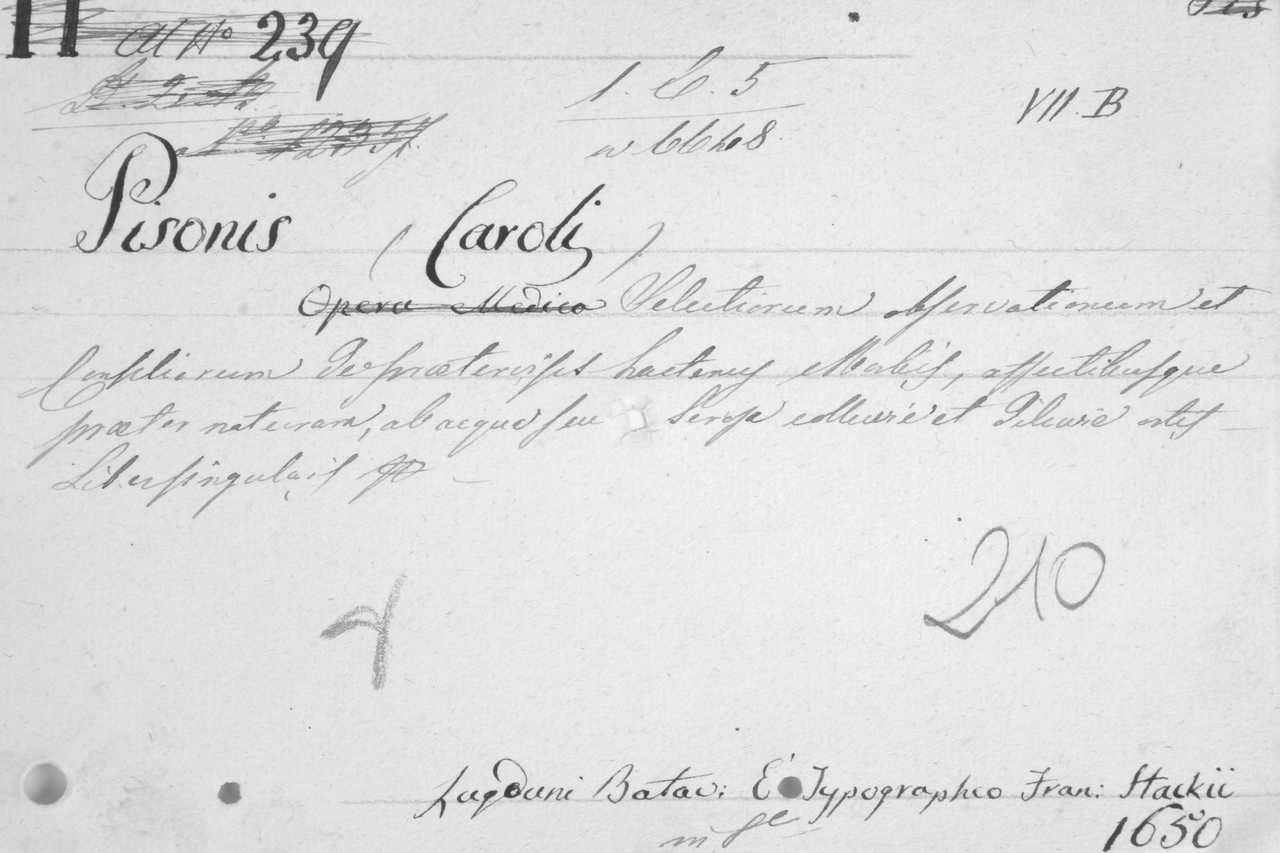 II al No 239
1. C. 5
VII. B
w 66408
Pisonis (Caroli)
Opera Medica Selectiorum observationum et
Consiliorum De praetervisis hactenus Morbis, affectibusque
praeter naturam, ab aqua seu Serosa colluvie et Diluvie ortis
Liber singularis
210
Lugduni Batav: E Typographeo Fran: Hackii
in 8e
1650